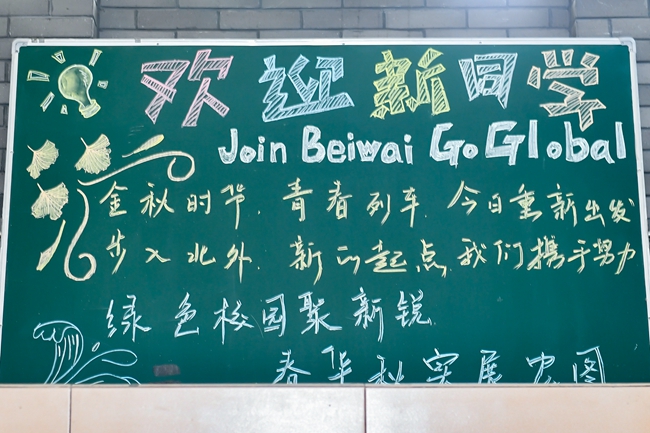 欢迎新同学
Join Beiwai Go Global
金秋时节.青春列车.今日重新出发
步入北外.新的起点.我们携手努力
绿色校园聚新锐.
春华秋实展宏图